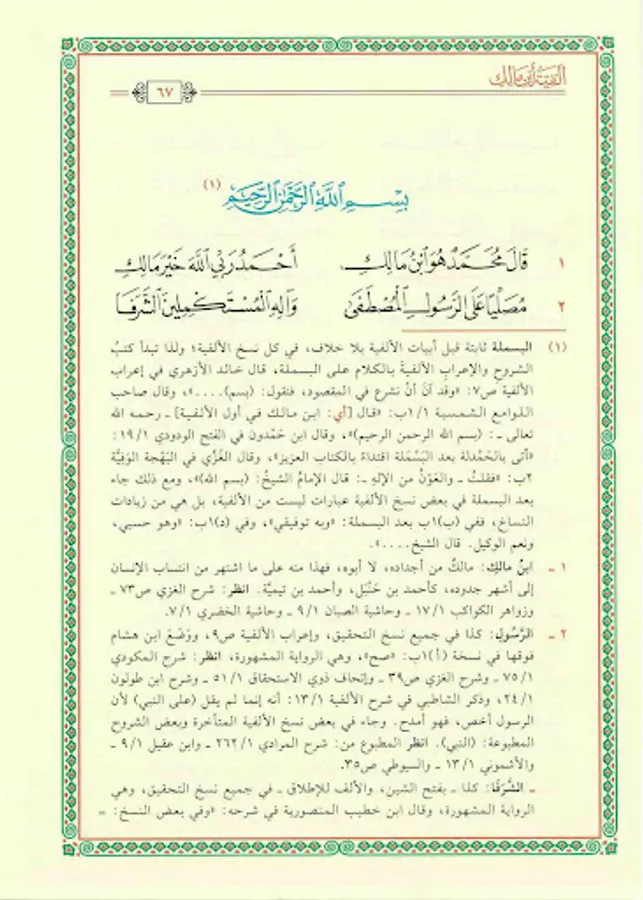 ألفية ابن مالك
٦٧
بِسْمِ اللَّهِ الرَّحْمَنِ الرَّحِيمِ (١)
١ قَالَ مُحَمَّدٌ هُوَ ابْنُ مَالِكِ أَحْمَدُ رَبِّي اللَّهَ خَيْرَ مَالِكِ
٢ مُصَلِّيًا عَلَى الرَّسُولِ الْمُصْطَفَى وَآلِهِ الْمُسْتَكْمِلِينَ الشَّرَفَا
(١) البسملة ثابتة قبل أبيات الألفية بلا خلاف، في كل نسخ الألفية؛ ولذا تبدأ كتبُ
الشروح والإعرابِ الألفيةَ بالكلام على البسملة، قال خالد الأزهري في إعراب
الألفية ص٧: «وقد آنَ أنْ نشرع في المقصود، فنقول: (بسم)....»، وقال صاحب
اللوامع الشمسية ١/١ب: «قال [أي: ابن مالك في أول الألفية] ـ رحمه الله
تعالى ـ: (بسم الله الرحمن الرحيم)»، وقال ابن حَمْدون في الفتح الودودي ١٩/١:
«أتى بالحَمْدلة بعد البَسْمَلة اقتداءً بالكتاب العزيز»، وقال الغَزِّي في البَهْجة الوَفِيَّة
٢ب: «فقلتُ ـ والعَوْنُ من الإلهِ ـ: قال الإمامُ الشيخُ: (بسم الله)»، ومع ذلك جاء
بعد البسملة في بعض نسخ الألفية عبارات ليست من الألفية، بل هي من زيادات
النساخ، ففي (ب)١ب بعد البسملة: «وبه توفيقي»، وفي (د)١ب: «وهو حسبي،
ونعم الوكيل. قال الشيخ....».
١ ـ ابنُ مالكِ: مالكٌ من أجداده، لا أبوه، فهذا منه على ما اشتهر من انتساب الإنسان
إلى أشهر جدوده، كأحمد بن حَنْبَل، وأحمد بن تيميَّة. انظر: شرح الغزي ص٧٣ ـ
وزواهر الكواكب ١٧/١ ـ وحاشية الصبان ٩/١ ـ وحاشية الخضري ٧/١.
٢ ـ الرَّسُولِ: كذا في جميع نسخ التحقيق، وإعراب الألفية ص٩، ووَضَعَ ابن هشام
فوقها في نسخة (أ)١ب: «صح»، وهي الرواية المشهورة، انظر: شرح المكودي
٧٥/١ ـ وشرح الغزي ص٣٩ ـ وإتحاف ذوي الاستحقاق ٥١/١ ـ وشرح ابن طولون
٢٤/١، وذكر الشاطبي في شرح الألفية ١٣/١: أنه إنما لم يقل (على النبي) لأن
الرسول أخص، فهو أمدح. وجاء في بعض نسخ الألفية المتأخرة وبعض الشروح
المطبوعة: (النبي). انظر المطبوع من: شرح المرادي ٢٦٢/١ ـ وابن عقيل ٩/١ ـ
والأشموني ١٣/١ ـ والسيوطي ص٣٥.
ـ الشَّرَفَا: كذا ـ بفتح الشين، والألف للإطلاق ـ في جميع نسخ التحقيق، وهي
الرواية المشهورة، وقال ابن خطيب المنصورية في شرحه: «وفي بعض النسخ: =